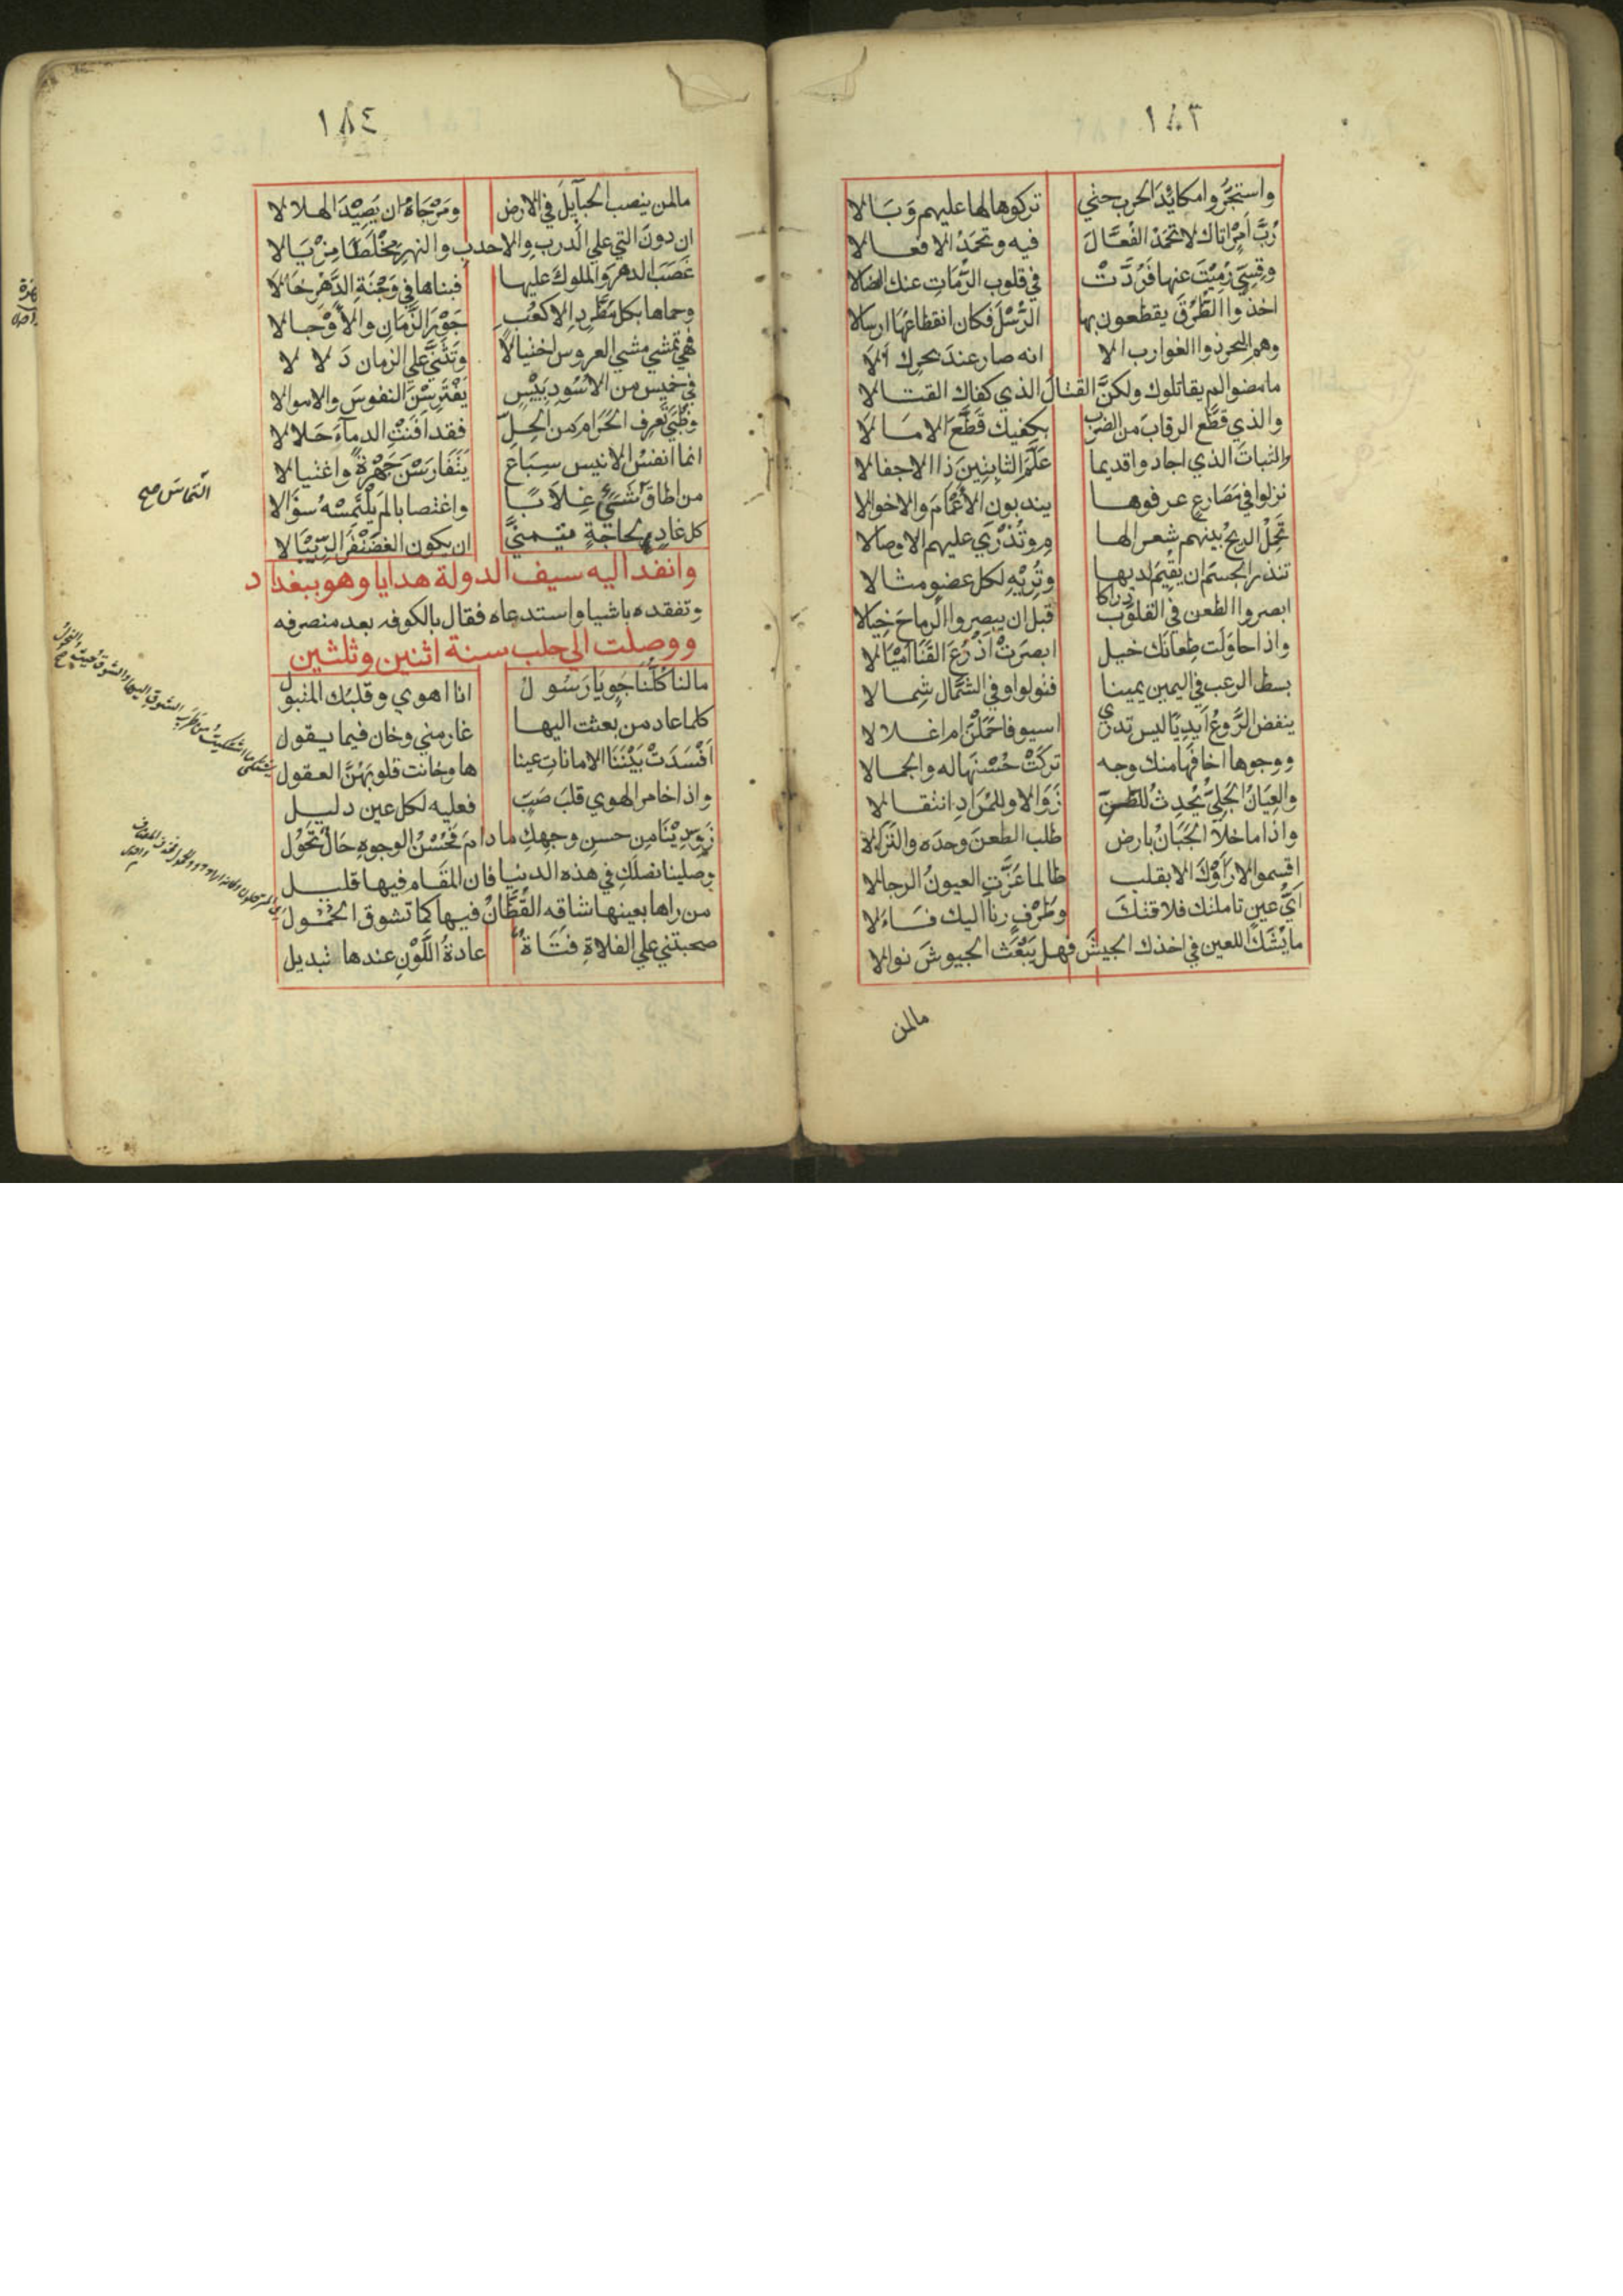 ١٨٣
واستجَرُّوا مكائدَ الحرب حتي تركوها لها عليهم وَبَالا
رُبَّ اَمْرٍ اتاك لا تحمَدُ الفُعَّالَ فيه وتحمَدُ الافعالا
وقِسِيٍّ رُمِيْتَ عنها فَرَدَّتْ في قلوب الرُّمَاتِ عنك النصالا
اخذوا الطُّرْقَ يقطعون بها الرُّسْلَ فكان انقطاعُهَا ارسالا
وهم البحر ذوا الغوارب الا انه صار عندَ بحرِك الَا
ما مضوا لم يقاتلوك ولكنَّ القتالَ الذي كفاك القتالا
والذي قطَّع الرقابَ من الضرب بكفيك قَطَّعَ الامالَا
والثباتَ الذي اجادوا قديما عَلَّمَ الثابِتِينَ ذا الاجفالا
نزلوا في مَصَارعٍ عرفوها يندبون الأَعْمَامَ والاخوالا
تَحْمِلُ الريحُ بينهم شعر الها مِ وتُذْرِي عليهم الاوصالا
تنذر الجسمَ ان يُقِيْمَ لديها وتُرِيْهِ لكل عضوٍ مثالا
ابصروا الطعن في القلوب دراكا قبل ان يبصروا الرماحَ خِيَالا
واذا حاوَلَت طِعانَك خيل ابصرَتْ اَذْرُعَ القَنَا امْيَالا
بسط الرعب في اليمين يمينا فتولوا وفي الشَّمَال شِمالا
ينفض الرَّوعُ اَيدِيًا ليس تدري اسيوفا حَمَلْنَ ام اغلالا
ووجوها اخافَها منك وجه تركَتْ حُسْنَها له والجمالا
والعِيَانُ الجَلِيُّ يُحْدِثُ للظنِّ زَوَالا وللمُرَادِ انتقالا
واذا ما خلَا الجَبَانُ بارض طلب الطعنَ وحدَه والنِّزَالا
اقسموا لا رَاَوْكَ الا بقلب طالما غَرَّتِ العيونُ الرجالا
اَيُّ عينٍ تاملتك فلاقتكَ وطَرْفٍ رنا اليك فَاَلا
ما يَشُكُّ اللعين في اخذك الجيشَ فهل يَبْعَثُ الجيوشَ نوالا
مالمن
١٨٤
مالمن ينصب الحبآيلَ في الارض ومَرْجَاهُ ان يَصِيْدَ الهلالا
ان دونَ التي علي الدرب والاحدب والنهر مِخْلَطًا مِزْيَالا
غَصَبَ الدهرَ والملوكَ عليها فبناها في وَجْنَةِ الدَّهْرِ خَالا
وحماها بكل مُطَّرِدِ الاكعُبِ جَوْرَ الزَّمَانِ والأَوْجالا
فهي تمشي مشي العروس اختيالًا وتَثَنَّي علي الزمان دَلالا
في خميس من الاسُودِ بَئِيْسٍ يَفْتَرِسْنَ النفوسَ والاموالا
وظُبًي تَعرِف الحَرَامَ من الحِلِّ فقد اَفْنَتْ الدمآءَ حَلالا
انما انفسُ الانيس سِبَاعٌ يَتَفَارَسْنَ جَهْرَةً واغتيالا
من اطاقَ شَيْءٍ غِلَابًا واغتصابا لم يَلْتَمِسْهُ سُؤَالا
كل غادٍ لحاجةٍ يتمنَّي ان يكون الغضَنْفَرَ الرِّيْبَالا
التماسَ صح
وانفد اليه سيف الدولة هدايا وهو ببغداد
وتفقده باشيا واستدعاه فقال بالكوفه بعد منصرفه
ووصلت الي حلب سنة اثنين وثلثين
مالنا كُلُّنا جَوٍ يا رَسُولُ انا اهوي وقلبُك المتبولُ
كلما عاد من بعثت اليها غار مني وخان فيما يقول
اَفْسَدَتْ بَيْنَنَا الاماناتِ عينا ها وخانت قلوبَهُنَّ العقول
واذا خامر الهوي قلبَ صَبّ فعليه لكل عين دليل
زَوِّدِيْنَا مِن حسنِ وجهِكِ ما دامَ فَحُسْنُ الوجوهِ حَالٌ تَحُوْلُ
وصلينا نصلكِ في هذه الدنيا فان المقَام فيها قليل
من راها بعينها شاقه القُطَّانُ فيها كما تشوق الحُمُول
صحبتني علي الفلاةِ فَتَاةٌ عادةُ اللَّوْنِ عندها تبديل